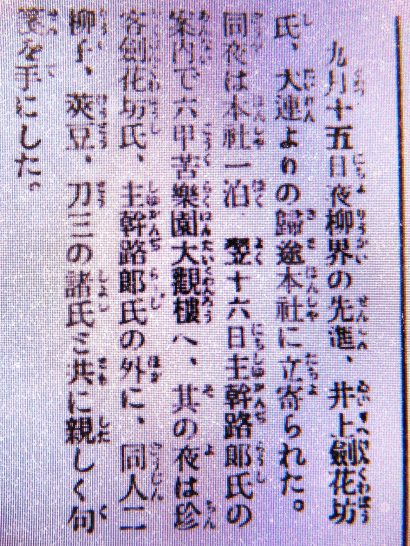 九月十五日夜柳界の先進、井上劍花坊
氏、大連よりの歸途本社に立寄られた。
同夜は本社一泊　翌十六日主幹路郎氏の
案内で六甲苦樂園大觀樓へ、其の夜は珍
客劍花坊氏、主幹路郎氏の外に、同人二
柳子、莢豆、刀三の諸氏ミ共に親しく句
箋を手にした。